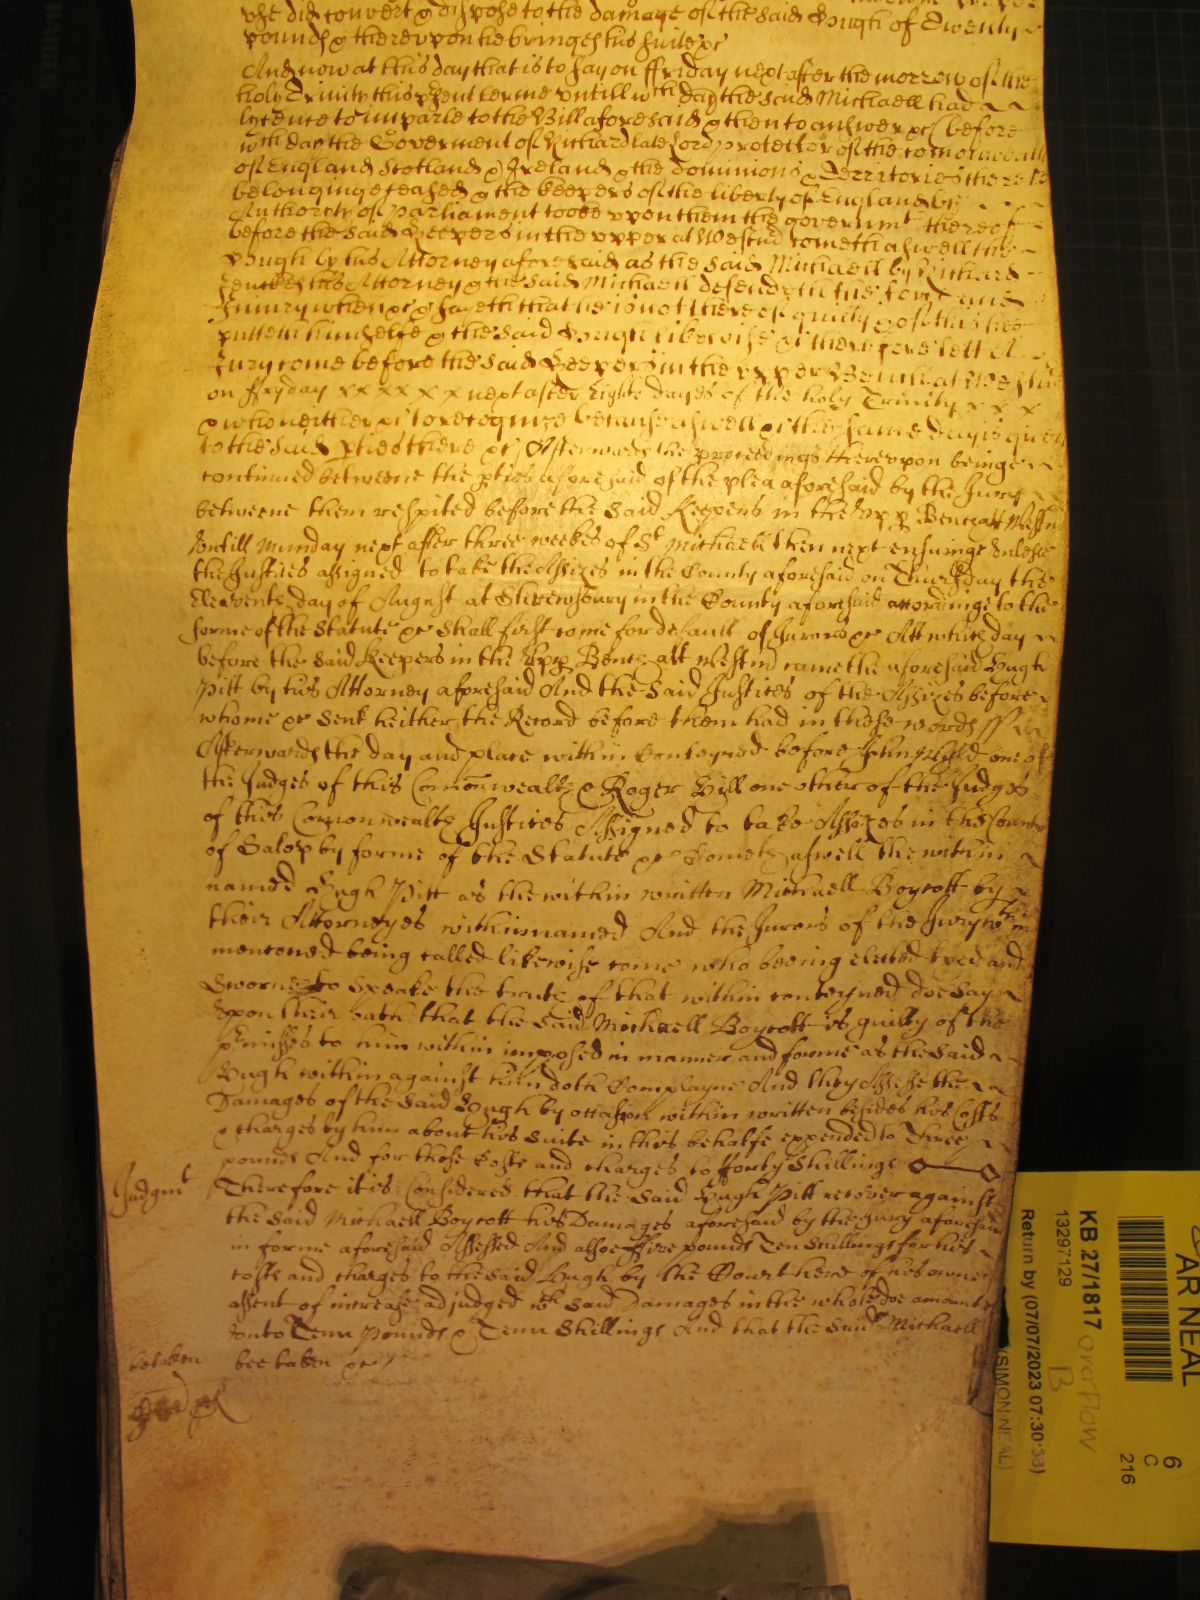 use did convert & dispose to the damage of the said Hugh of Twenty
pounds & thereupon he bringeth his suite &c
And now at this day that is to say on ffriday next after the morrow of the
holy Trinity this psent terme untill wch day the said Michaell had
lycence to imparle to the Bill aforesaid & then to answer &c before
wch day the Goverment of Richard late Lord protector of the comonwealth
of England Scotland & Ireland & the dominions & Territories there to
belonginge ceased & the keepers of the liberty of England by
Authority of Parliament tooke upon them the governmt thereof
before the said Keepers in the upper at Westm cometh aswell the
Hugh by his Attorney aforesaid as the said Michaell by Richard
his Attorney & the said Michaell defendeth the force and
Iniury when &c & sayeth that he is not thereof guilty & of this hee
putteth himselfe & the said Hugh likewise &c therefore lett a
Jury come before the said Keepers in the upper Bench at Westm
on ffryday x x x x x x next after Eight dayes of the holy Trinity x x x
& who neither &c to recognize because aswell &c the same day is given
to the said pties there &c Afterwards the proceedings thereupon beinge
continued betweene the pties aforesaid of the plea aforesaid by the Jury
betweene them respited before the said Keepers in the Upp Bench att Westm
Untill Munday next after three weekes of St Michaell then next ensuinge Unlesse
the Justices assigned to take the Assizes in the County aforesaid on Thursday the
Eleaventh day of August at Shrewsbury in the County aforesaid accordinge to the
forme of the Statute &c Shall first come for default of Jurors &c Att which day
before the said Keepers in the Upp Bench att Westm came the aforesaid Hugh
Pitt by his Attorney aforesaid And the said Justices of the Assizes before
whome &c sent heither the Record before them had in these words ss
Afterwards the day and place within Conteyned before John Wyld one of
the Judges of this Comonwealth & Roger Hill one other of the Judges
of this Comonwealth Justices Assigned to take Assizes in the County
of Salop by forme of the Statute &c Cometh aswell the within
named Hugh Pitt as the within written Michaell Boycott by
their Attorneyes within named And the Jurors of the Jury within
menconed being called likewise come who beeing elected tryed and
Sworne to speake the truth of that within conteyned doe say
Upon their oath that the said Michaell Boycott is guilty of the
pmisses to him within imposed in manner and forme as the said
Hugh within against him doth Complayne And they Assesse the
Damages of the said Hugh by occasion within written besides his Costs
& charges by him about his suite in this behalfe expended to Three
pounds And for those Costs and charges to fforty Shillings
Judgmt Therefore it is Considered that the said Hugh Pitt recover against
the said Michaell Boycott his Damages aforesaid by the Jury aforesaid
in forme aforesaid Assessed And alsoe ffive pounds Ten Shillings for his
costs and charges to the said Hugh by the Court here of his owne
assent of increase adjudged wch said Damages in the whole doe amount
Unto Tenn Pounds & Tenn Shillings And that the said Michaell
be taken bee taken &c
AR NEAL
KB 27/1817 overflow
13297129 B
Return by (07/07/2023 07:30:38)
(SIMON NEAL)
6
C
216